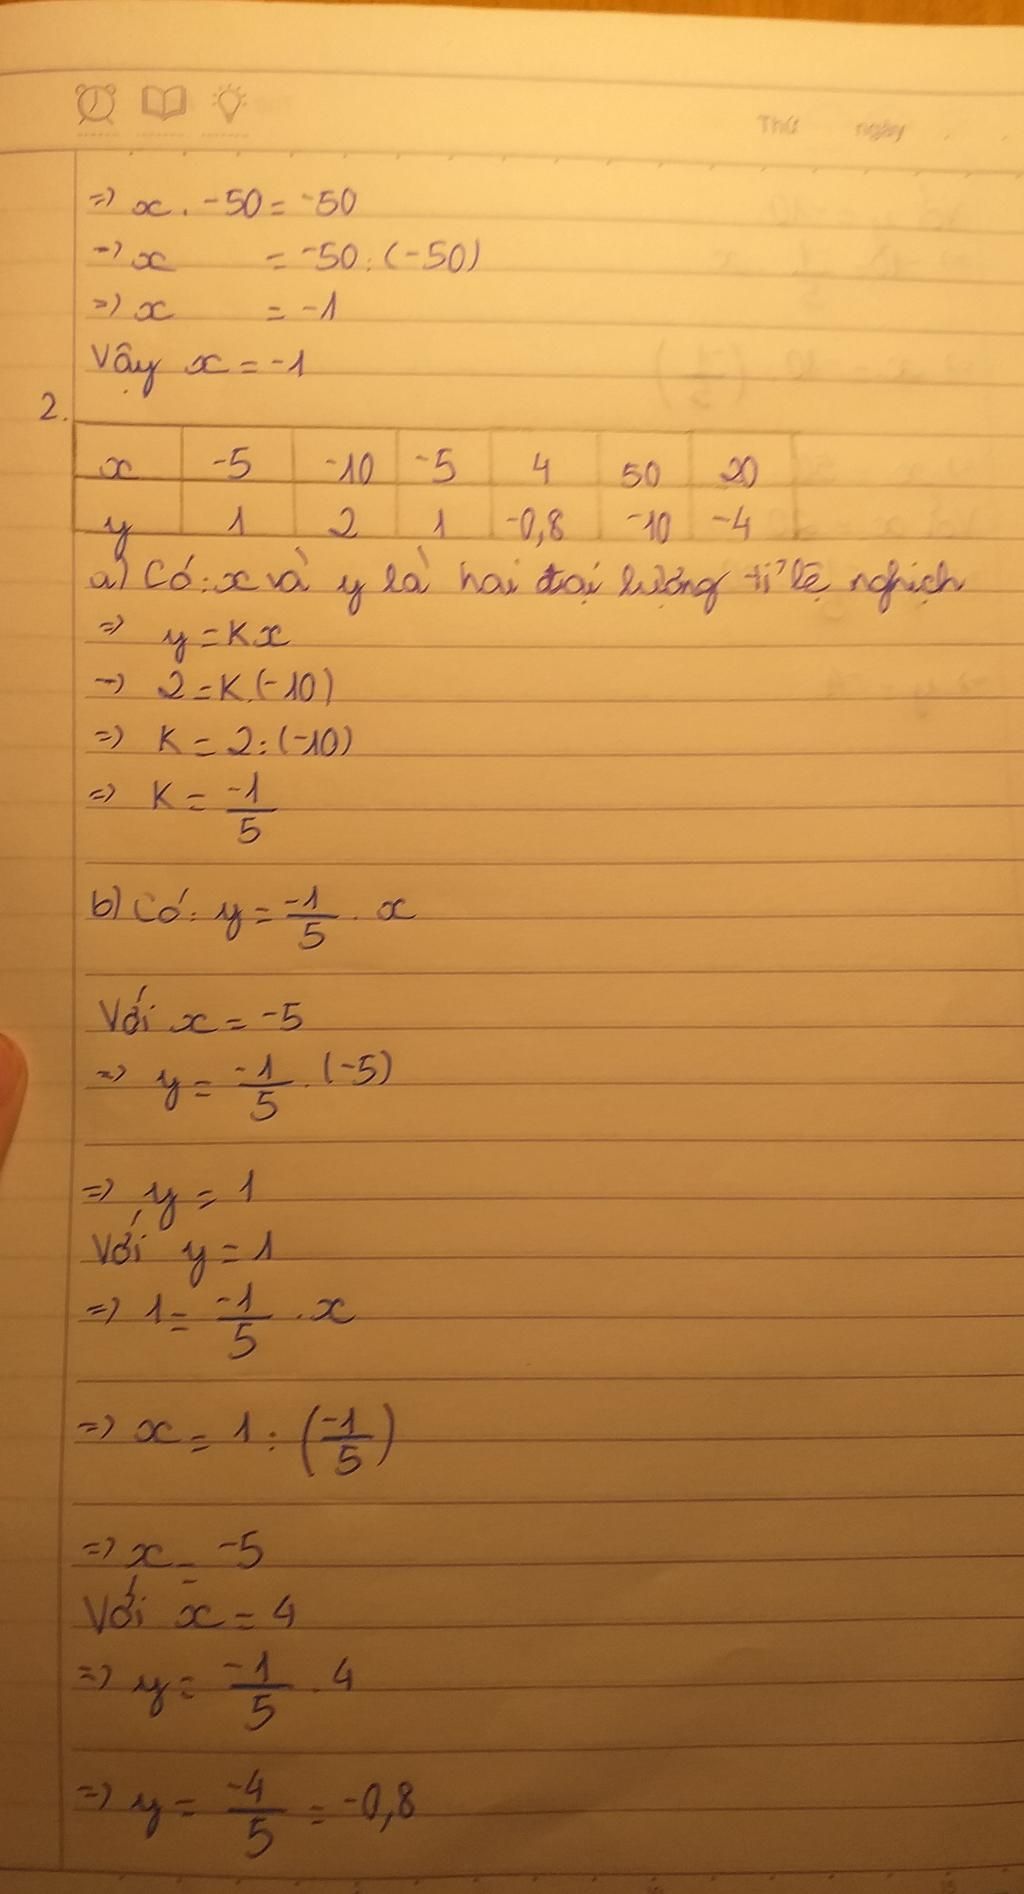 Thứ ngày
=> x. -50 = -50
=> x = -50 : (-50)
=> x = -1
Vậy x = -1
2.
x -5 -10 -5 4 50 20
y 1 2 1 -0,8 -10 -4
a) Có: x và y là hai đại lượng tỉ lệ nghịch
=> y = Kx
=> 2 = K.(-10)
=> K = 2 : (-10)
=> K = -1/5
b) Có: y = -1/5 . x
Với x = -5
=> y = -1/5 . (-5)
=> y = 1
Với y = 1
=> 1 = -1/5 . x
=> x = 1 : (-1/5)
=> x = -5
Với x = 4
=> y = -1/5 . 4
=> y = -4/5 = -0,8